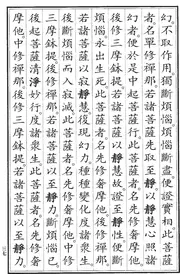 幻不取作用獨斷煩惱煩惱斷盡便證實相此菩薩
者名單修禪那若諸菩薩先取至靜以靜慧心照諸
幻者便於是中起菩薩行此菩薩者名先修奢摩他
後修三摩鉢提若諸菩薩以靜慧故證至靜性便斷
煩惱永出生死此菩薩者名先修奢摩他後修禪那
若諸菩薩以寂靜慧復現幻力種種變化度諸眾生
後斷煩惱而入寂滅此菩薩者名先修奢摩他中修
三摩鉢提後修禪那若諸菩薩以至靜力斷煩惱已
後起菩薩清淨妙行度諸眾生此菩薩者名先修奢
摩他中修禪那後修三摩鉢提若諸菩薩以至靜力